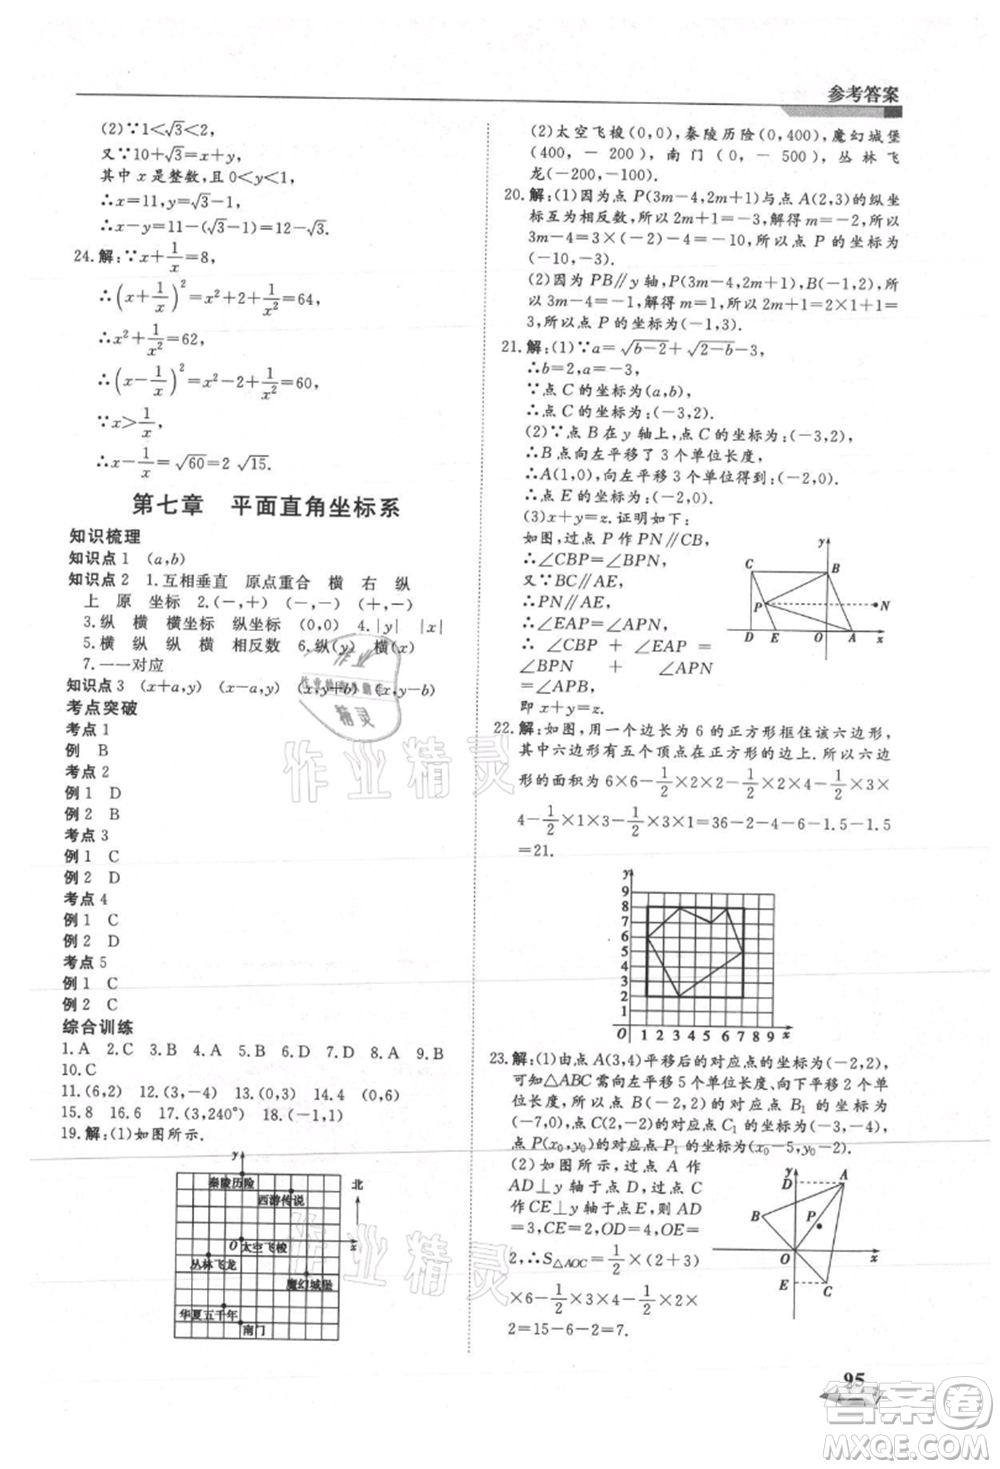 参考答案
(2)∵1<√3<2,
又∵10+√3=x+y,
其中 x 是整数,且 0<y<1,
∴x=11,y=√3-1,
∴x-y=11-(√3-1)=12-√3.
24.解:∵x+1/x=8,
∴(x+1/x)²=x²+2+1/x²=64,
∴x²+1/x²=62,
∴(x-1/x)²=x²-2+1/x²=60,
∵x>1/x,
∴x-1/x=√60=2√15.
第七章 平面直角坐标系
知识梳理
知识点 1 (a,b)
知识点 2 1.互相垂直 原点重合 横 右 纵
上 原 坐标 2.(-,+) (-,-) (+,-)
3.纵 横 横坐标 纵坐标 (0,0) 4.|y| |x|
5.横 纵 纵 横 相反数 6.纵(y) 横(x)
7.一一对应
知识点 3 (x+a,y) (x-a,y) (x,y+b) (x,y-b)
考点突破
考点 1
例 B
考点 2
例 1 D
例 2 B
考点 3
例 1 C
例 2 D
考点 4
例 1 C
例 2 D
考点 5
例 1 C
例 2 C
综合训练
1.A 2.C 3.B 4.D 5.B 6.B 7.C 8.A 9.B
10.C
11.(6,2) 12.(3,-4) 13.(0,3) 14.4 (0,6)
15.8 16.6 17.(3,240°) 18.(-1,1)
19.解:(1)如图所示.
y
秦陵历险
西游传说
北
O 太空飞梭
x
丛林飞龙
魔幻城堡
华夏五千年
南门
(2)太空飞梭(0,0),秦陵历险(0,400),魔幻城堡
(400,-200),南门(0,-500),丛林飞
龙(-200,-100).
20.解:(1)因为点 P(3m-4,2m+1)与点 A(2,3)的纵坐
标互为相反数,所以 2m+1=-3,解得 m=-2,所以
3m-4=3×(-2)-4=-10,所以点 P 的坐标为
(-10,-3).
(2)因为 PB∥y 轴,P(3m-4,2m+1),B(-1,2),
所以 3m-4=-1,解得 m=1,所以 2m+1=2×1+1=
3,所以点 P 的坐标为(-1,3).
21.解:(1)∵a=√b-2+√2-b-3,
∴b=2,a=-3,
∵点 C 的坐标为(a,b),
∴点 C 的坐标为:(-3,2).
(2)∵点 B 在 y 轴上,点 C 的坐标为:(-3,2),
∴点 B 向左平移了 3 个单位长度,
∴A(1,0),向左平移 3 个单位得到:(-2,0).
∴点 E 的坐标为:(-2,0).
(3)x+y=z.证明如下:
如图,过点 P 作 PN∥CB,
∴∠CBP=∠BPN,
又∵BC∥AE,
∴PN∥AE,
∴∠EAP=∠APN,
∴∠CBP + ∠EAP =
∠BPN + ∠APN =
∠APB,
即 x+y=z.
y
C
B
P
N
D
E
O
A
x
22.解:如图,用一个边长为 6 的正方形框住该六边形,
其中六边形有五个顶点在正方形的边上.所以六边
形的面积为 6×6-1/2×2×2-1/2×4×3-1/2×
4-1/2×1×2-1/2×3×1=36-2-4-6-1.5-1.5
=21.
y
9
8
7
6
5
4
3
2
1
O 1 2 3 4 5 6 7 8 9 x
23.解:(1)由点 A(3,4)平移后的对应点的坐标为(-2,2),
可知△ABC 需向左平移 5 个单位、向下平移 2 个单位,
则点 B(-2,2)的对应点 B₁ 的坐标为
(-7,0),点 C(2,-2)的对应点 C₁ 的坐标为(-3,-4),
点 P(x₀,y₀)的对应点 P₁ 的坐标为(x₀-5,y₀-2).
(2)如图所示,过点 A 作
AD⊥y 轴于点 D,过点 C 作
CE⊥y 轴于点 E,则 AD=3,
CE=2,OD=4,OE=
2,∴S△AOC=1/2×(2+3)
×6-1/2×3×4-1/2×2×
2=15-6-2=7.
y
D
A
B
P
O
x
E
C
95
作业精灵
答案圈
MXQE.COM